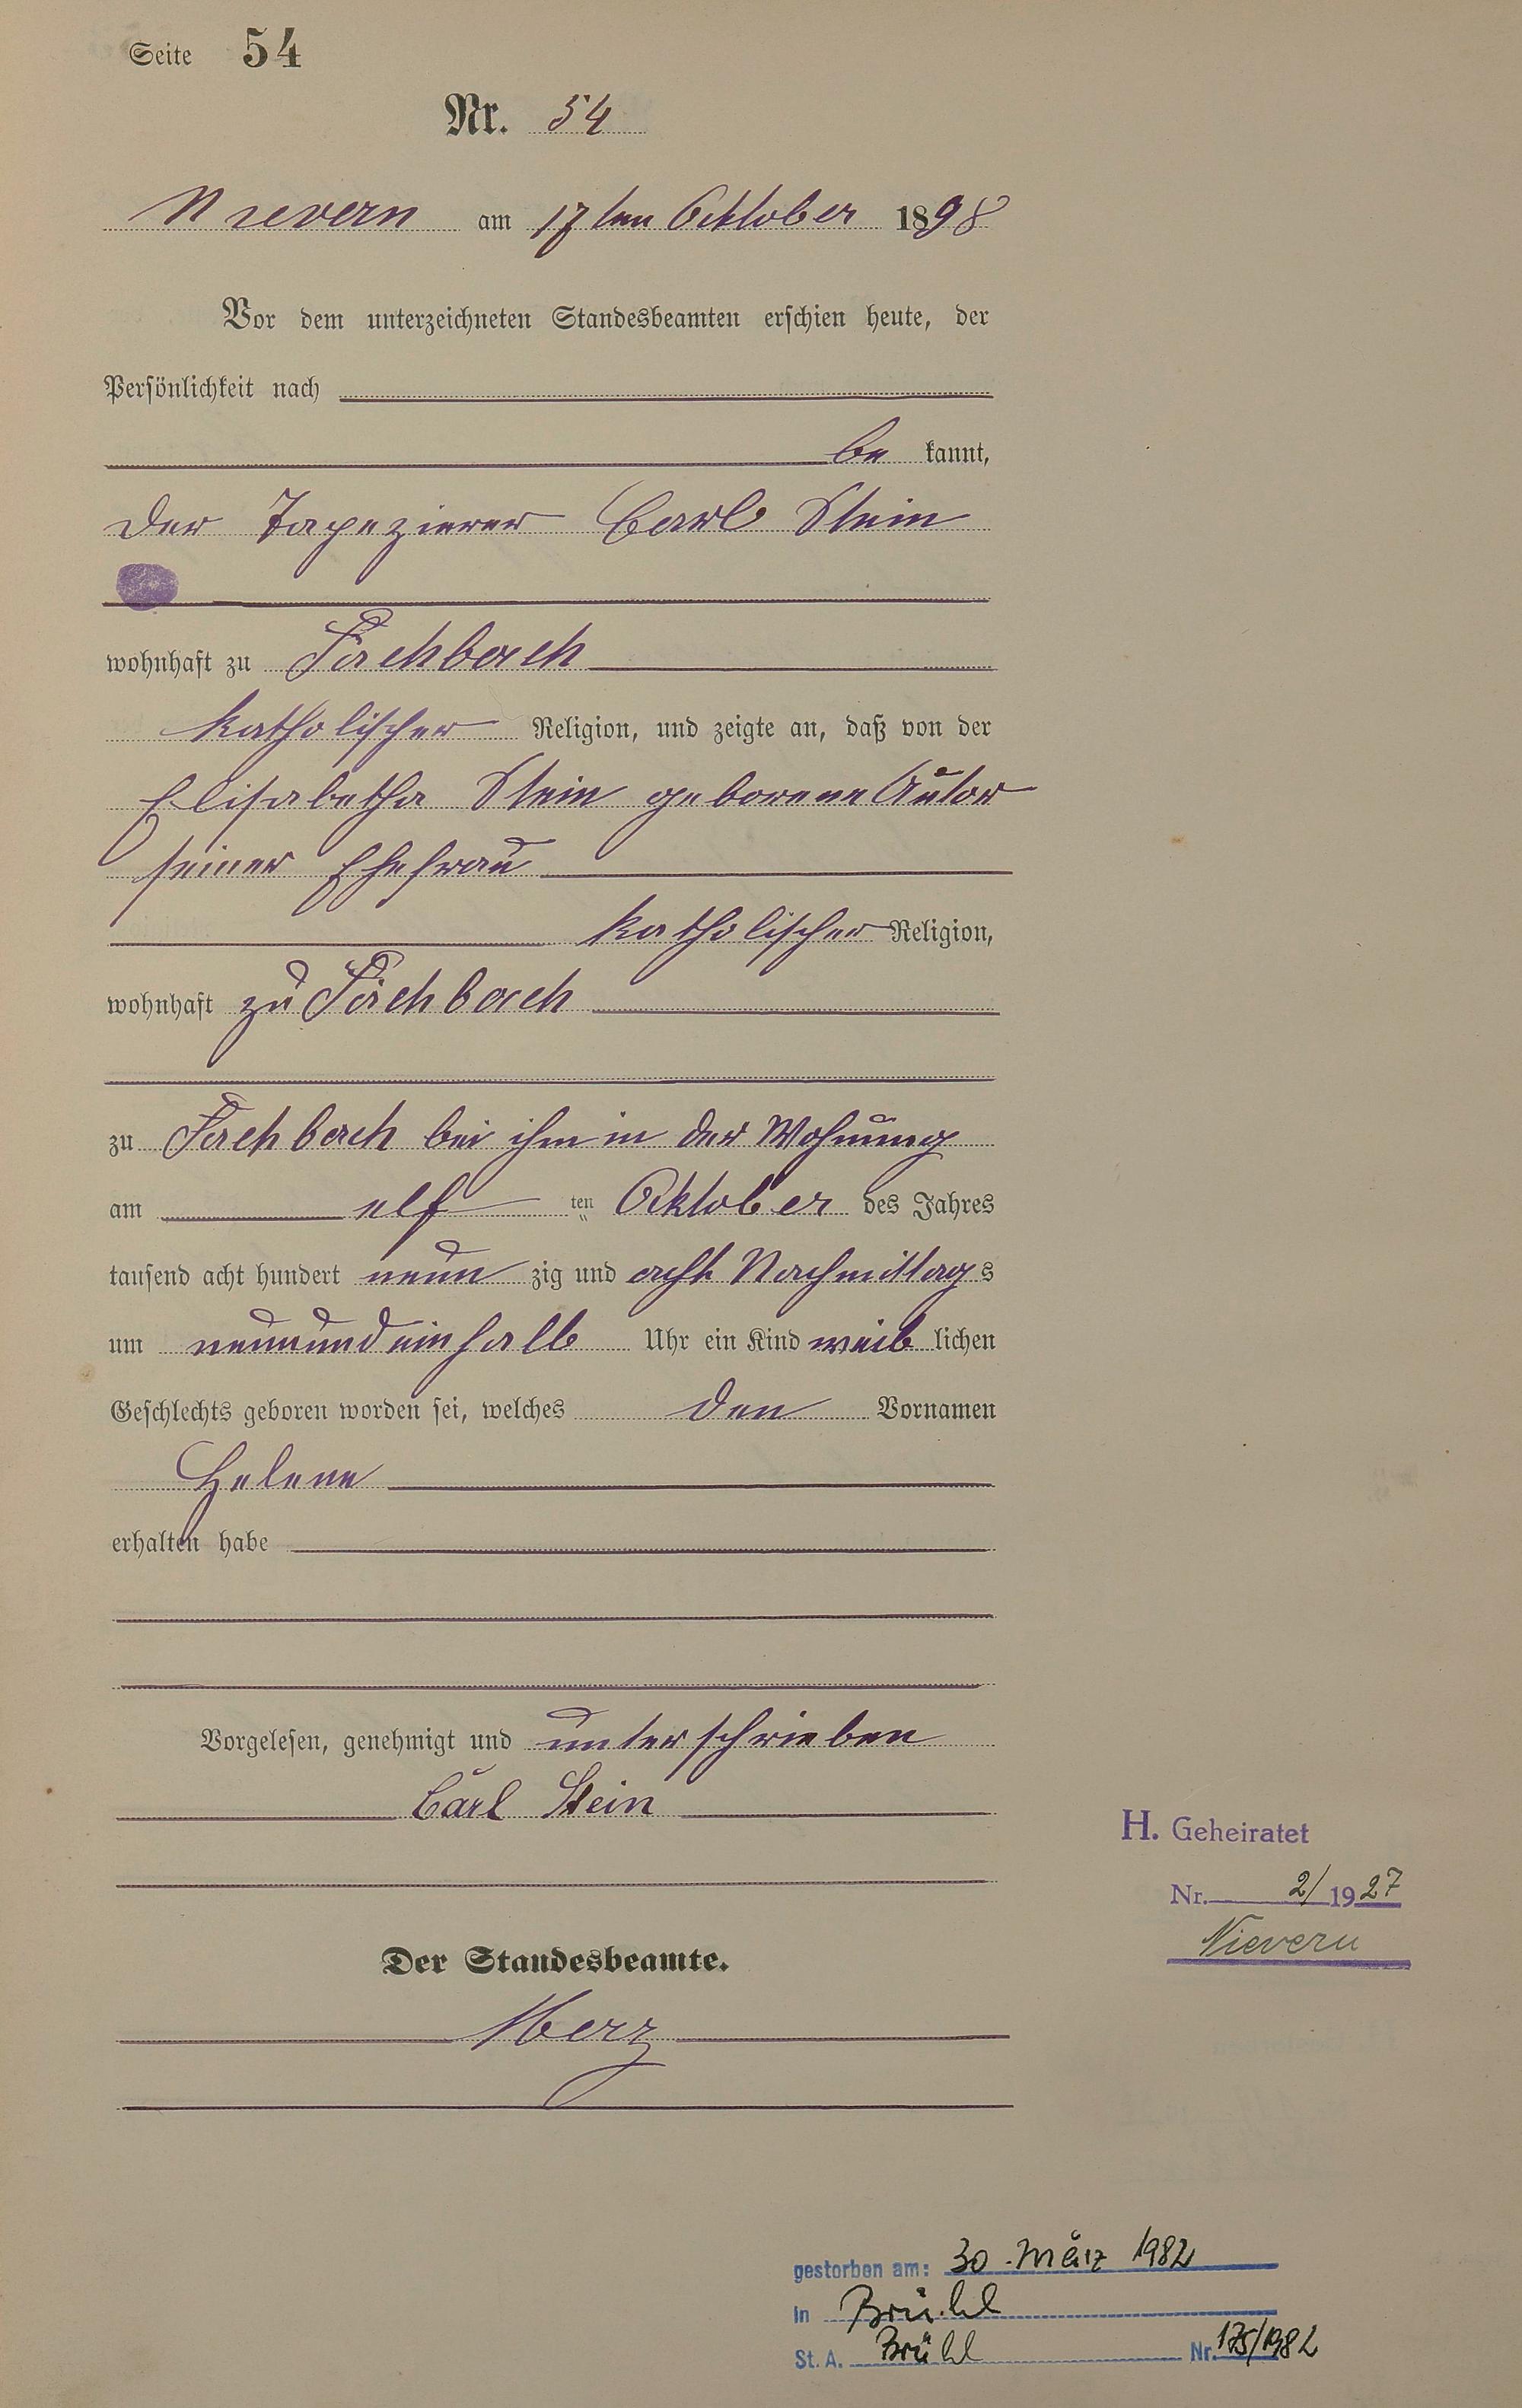 Seite 54
Nr. 54
Nievern am 17ten Oktober 1898
Vor dem unterzeichneten Standesbeamten erschien heute, der
Persönlichkeit nach
be kannt,
der Tapezierer Carl Stein
wohnhaft zu Fachbach
katholischer Religion, und zeigte an, daß von der
Elisabetha Stein geborene Autor
seiner Ehefrau
katholischer Religion,
wohnhaft zu Fachbach
zu Fachbach bei ihm in der Wohnung
am elf ten Oktober des Jahres
tausend acht hundert neun zig und acht Nachmittags
um neunundeinhalb Uhr ein Kind weib lichen
Geschlechts geboren worden sei, welches den Vornamen
Helene
erhalten habe
Vorgelesen, genehmigt und unterschrieben
Carl Stein
Der Standesbeamte.
Merz
H. Geheiratet
Nr. 2/1927
Nievern
gestorben am: 30. März 1982
in Brühl
St. A. Brühl Nr. 175/1982